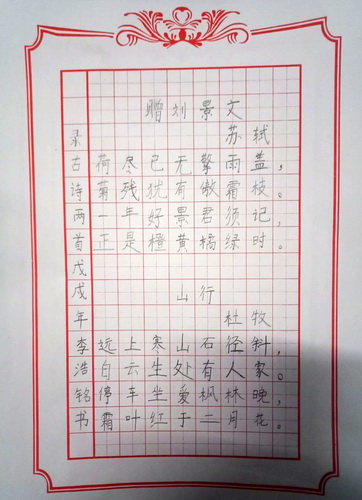 赠刘景文
苏轼
荷尽已无擎雨盖，
菊残犹有傲霜枝。
一年好景君须记，
正是橙黄橘绿时。
山行
杜牧
远上寒山石径斜，
白云生处有人家。
停车坐爱枫林晚，
霜叶红于二月花。
录古诗两首戊戌年李浩铭书